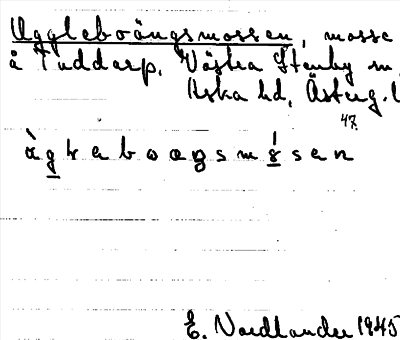 Uggleboängsmossen, mosse
å Tuddarp, Västra Stenby sn,
Aska hd, Österg. l
47.
E. Nordlander 1945